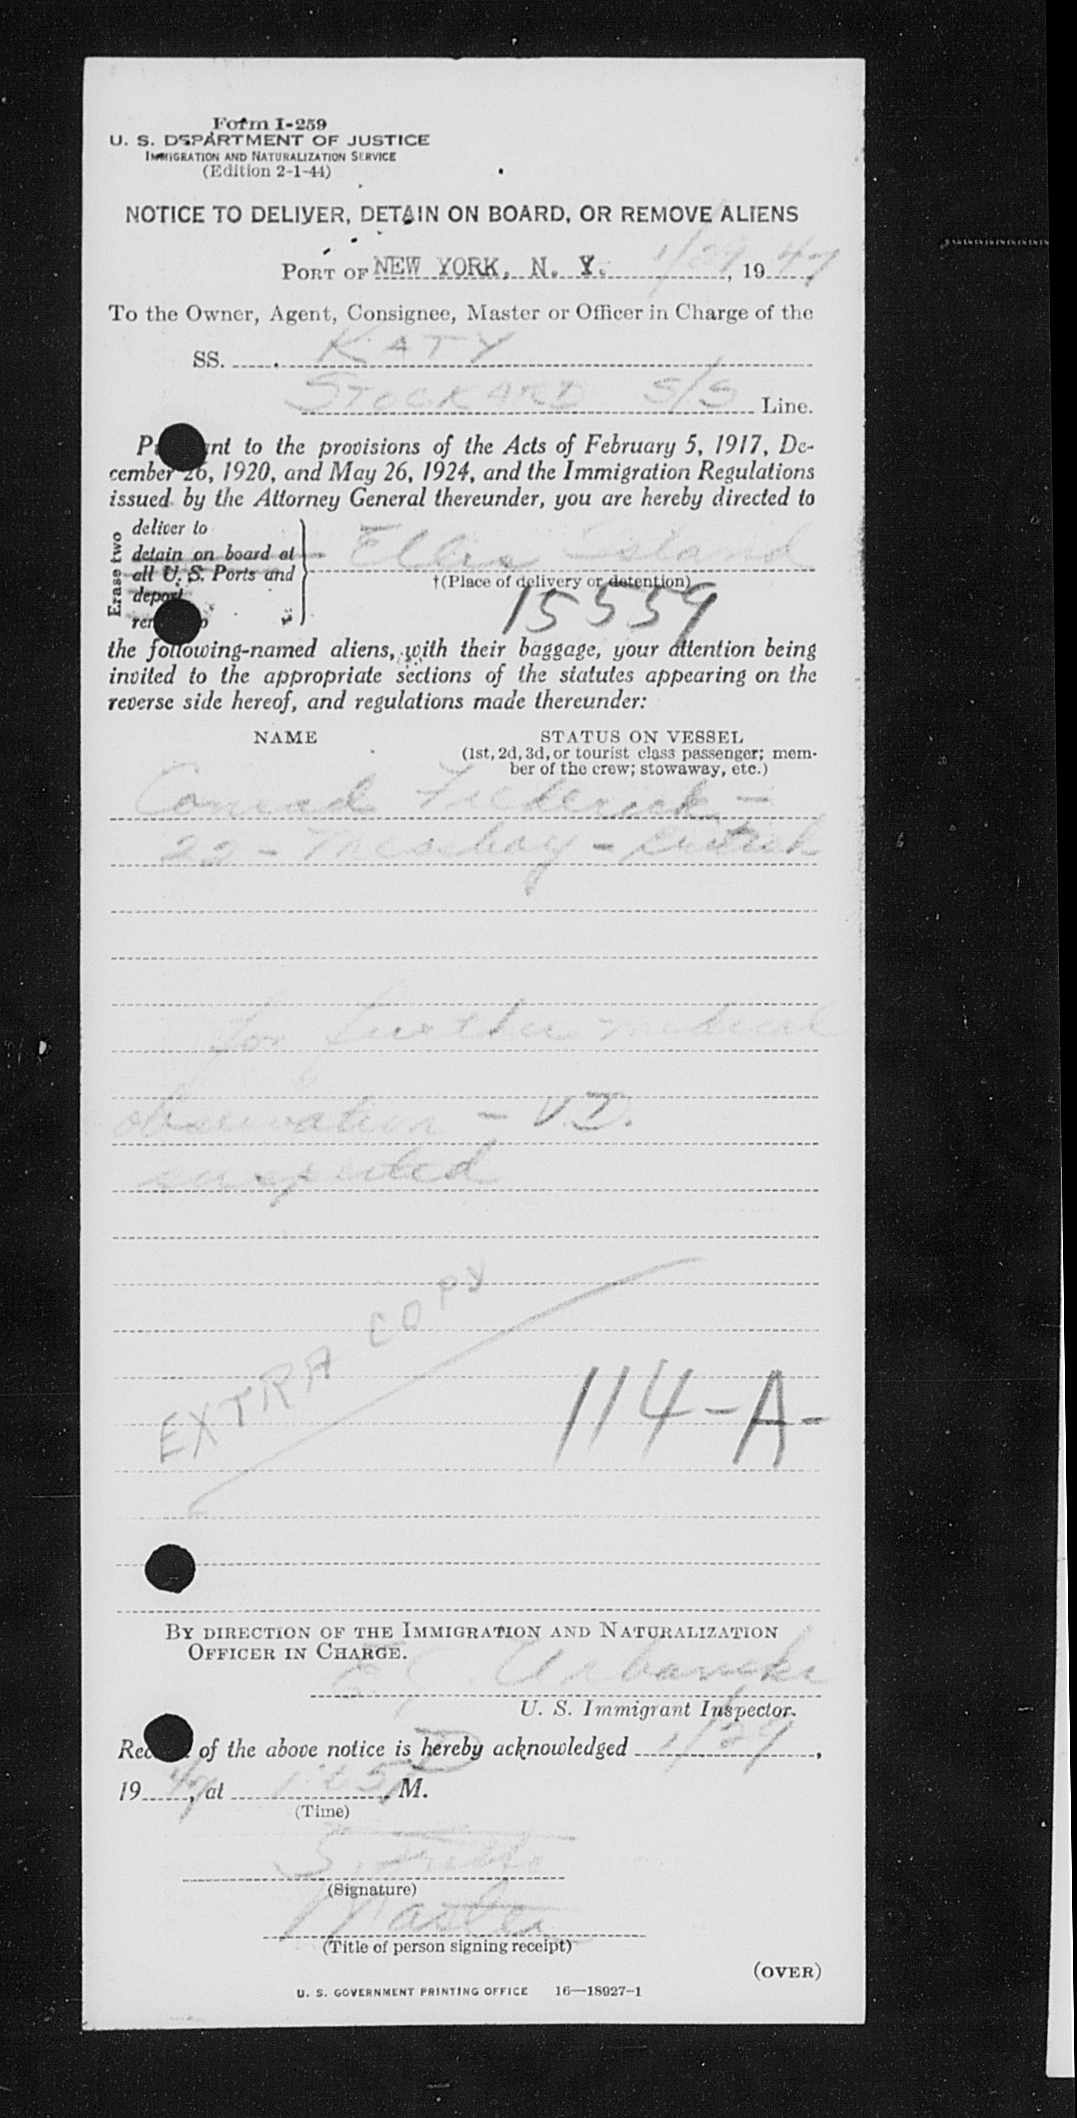 Form I-259
U. S. DEPARTMENT OF JUSTICE
IMMIGRATION AND NATURALIZATION SERVICE
(Edition 2-1-44)
NOTICE TO DELIVER, DETAIN ON BOARD, OR REMOVE ALIENS
PORT OF NEW YORK, N. Y. 1/29, 1947
To the Owner, Agent, Consignee, Master or Officer in Charge of the
SS. KATY
STOCKARD S/S Line.
nt to the provisions of the Acts of February 5, 1917, De-
cember 26, 1920, and May 26, 1924, and the Immigration Regulations
issued by the Attorney General thereunder, you are hereby directed to
Erase two
deliver to
detain on board at
all U. S. Ports and
deport
Ellis Island
†(Place of delivery or detention)
15559
the following-named aliens, with their baggage, your attention being
invited to the appropriate sections of the statutes appearing on the
reverse side hereof, and regulations made thereunder:
NAME
STATUS ON VESSEL
(1st, 2d, 3d, or tourist class passenger; mem-
ber of the crew; stowaway, etc.)
Conrad Frederick -
22 - Messboy -
for further medical
observation - V.D.
suspected
EXTRA COPY
114-A-
BY DIRECTION OF THE IMMIGRATION AND NATURALIZATION
OFFICER IN CHARGE.
Urbanski
U. S. Immigrant Inspector.
of the above notice is hereby acknowledged 1/29,
1947, at M.
(Time)
(Signature)
Master
(Title of person signing receipt)
(OVER)
U. S. GOVERNMENT PRINTING OFFICE 16—18927-1